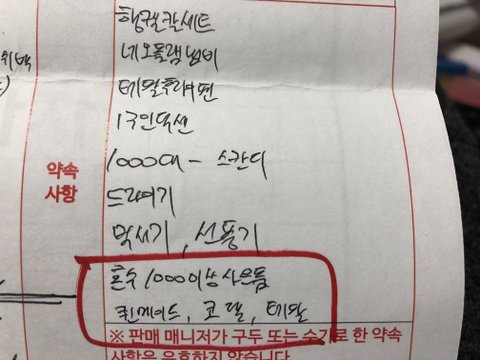 헹켈칼세트
네오플램냄비
테팔후라이팬
1000대 - 스칸디
드라이기
믹서기, 선풍기
혼수 1000이상 사은품
퀸메이드, 코렐, 테팔
약속
사항
※ 판매 매니저가 구두 또는 수기로 한 약속
사항은 유효하지 않습니다